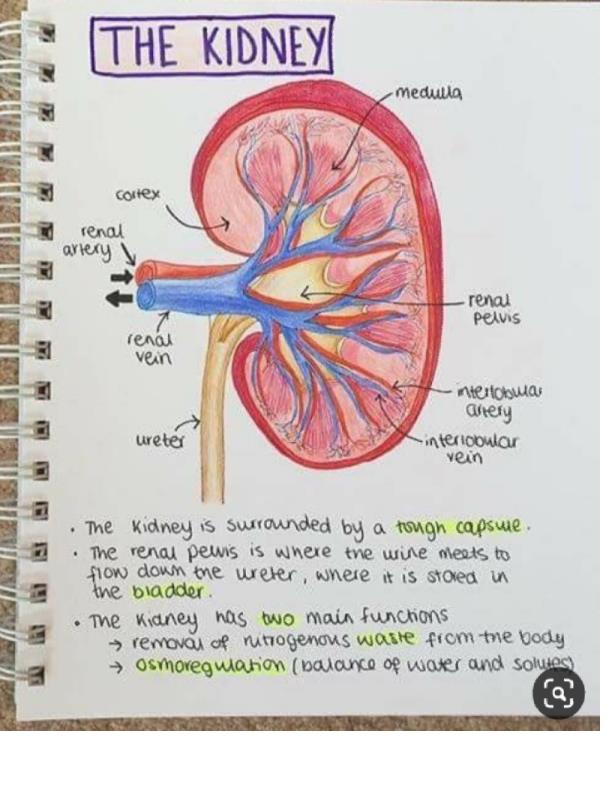 THE KIDNEY
medulla
cortex
renal
artery
renal
pelvis
renal
vein
interlobular
artery
interlobular
vein
ureter
• The Kidney is surrounded by a tough capsule.
• The renal pelvis is where the urine meets to
flow down the ureter, where it is stored in
the bladder.
• The Kidney has two main functions
→ removal of nitrogenous waste from the body
→ osmoregulation (balance of water and solutes)